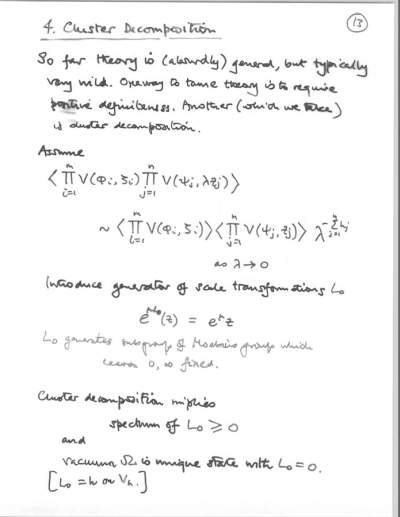 4. Cluster Decomposition
13
So far theory is (absurdly) general, but typically
very wild. One way to tame theory is to require
positive definiteness. Another (which we take)
is cluster decomposition.
Assume
⟨ ∏_{i=1}^{m} V(φ_i, ζ_i) ∏_{j=1}^{n} V(ψ_j, λz_j) ⟩
~ ⟨ ∏_{i=1}^{m} V(φ_i, ζ_i) ⟩ ⟨ ∏_{j=1}^{n} V(ψ_j, z_j) ⟩ λ^{-∑_{j=1}^{n} h_j}
as λ → 0
Introduce generator of scale transformations L_0
e^{μL_0}(z) = e^{μ}z
L_0 generates subgroup of Moebius group which
leaves 0, ∞ fixed.
Cluster decomposition implies
spectrum of L_0 ⩾ 0
and
vacuum Ω is unique state with L_0 = 0.
[L_0 = h on V_h.]